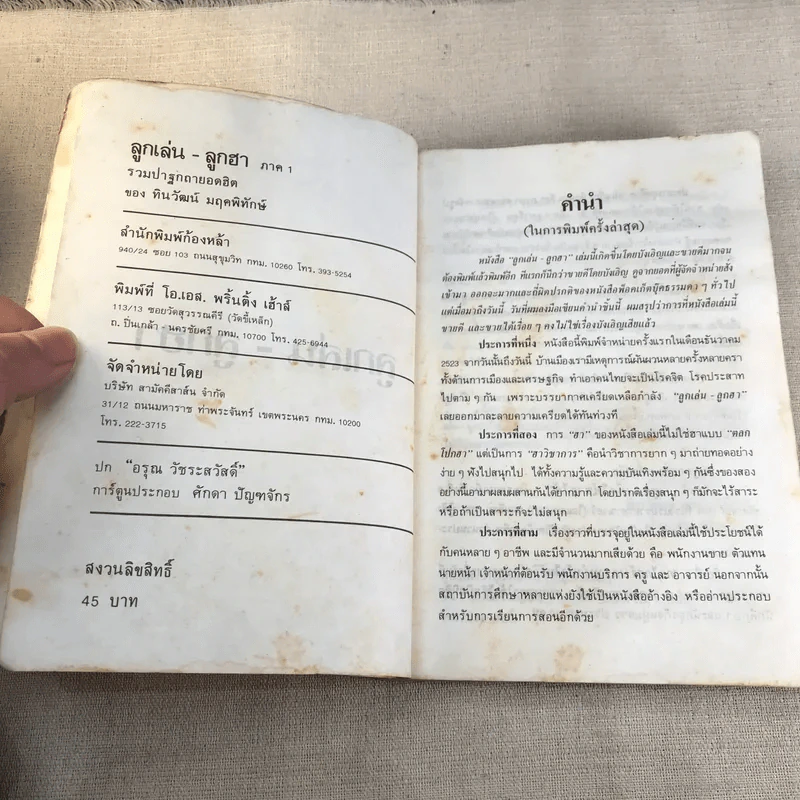 ลูกเล่น - ลูกฮา ภาค 1
รวมปาฐกถายอดฮิต
ของ ทินวัฒน์ มฤคพิทักษ์
สำนักพิมพ์ก้องหล้า
940/24 ซอย 103 ถนนสุขุมวิท กทม. 10260 โทร. 393-5254
พิมพ์ที่ โอ.เอส. พริ้นติ้ง เฮ้าส์
113/13 ซอยวัดสุวรรณคีรี (วัดขี้เหล็ก)
ถ. ปิ่นเกล้า - นครชัยศรี กทม. 10700 โทร. 425-6944
จัดจำหน่ายโดย
บริษัท สามัคคีสาส์น จำกัด
31/12 ถนนมหาราช ท่าพระจันทร์ เขตพระนคร กทม. 10200
โทร. 222-3715
ปก "อรุณ วัชระสวัสดิ์"
การ์ตูนประกอบ ศักดา ปัญฑจักร
สงวนลิขสิทธิ์
45 บาท
คำนำ
(ในการพิมพ์ครั้งล่าสุด)
หนังสือ "ลูกเล่น - ลูกฮา" เล่มนี้เกิดขึ้นโดยบังเอิญและขายดีมากจน
ต้องพิมพ์แล้วพิมพ์อีก ทีแรกก็นึกว่าขายดีโดยบังเอิญ ดูจากยอดที่ผู้จัดจำหน่ายสั่ง
เข้ามา ออกจะมากและก็ผิดปรกติของหนังสือพ็อคเก็ตบุ๊คธรรมดา ๆ ทั่วไป
แต่เมื่อมาถึงวันนี้ วันที่ผมลงมือเขียนคำนำชิ้นนี้ ผมสรุปว่าการที่หนังสือเล่มนี้
ขายดี และขายได้เรื่อย ๆ คงไม่ใช่เรื่องบังเอิญเสียแล้ว
ประการที่หนึ่ง หนังสือนี้พิมพ์จำหน่ายครั้งแรกในเดือนธันวาคม
2523 จากวันนั้นถึงวันนี้ บ้านเมืองเรามีเหตุการณ์ผันผวนหลายครั้งหลายครา
ทั้งด้านการเมืองและเศรษฐกิจ ทำเอาคนไทยจะเป็นโรคจิต โรคประสาท
ไปตาม ๆ กัน เพราะบรรยากาศเครียดเหลือกำลัง "ลูกเล่น - ลูกฮา"
เลยออกมาละลายความเครียดได้ทันท่วงที
ประการที่สอง การ "ฮา" ของหนังสือเล่มนี้ไม่ใช่ฮาแบบ "ตลก
โปกฮา" แต่เป็นการ "ฮาวิชาการ" คือนำวิชาการยาก ๆ มาถ่ายทอดอย่าง
ง่าย ๆ ฟังไปสนุกไป ได้ทั้งความรู้และความบันเทิงพร้อม ๆ กันซึ่งของสอง
อย่างนี้เอามาผสมผสานกันได้ยากมาก โดยปรกติเรื่องสนุก ๆ ก็มักจะไร้สาระ
หรือถ้าเป็นสาระก็จะไม่สนุก
ประการที่สาม เรื่องราวที่บรรจุอยู่ในหนังสือเล่มนี้ใช้ประโยชน์ได้
กับคนหลาย ๆ อาชีพ และมีจำนวนมากเสียด้วย คือ พนักงานขาย ตัวแทน
นายหน้า เจ้าหน้าที่ต้อนรับ พนักงานบริการ ครู และ อาจารย์ นอกจากนั้น
สถาบันการศึกษาหลายแห่งยังใช้เป็นหนังสืออ้างอิง หรืออ่านประกอบ
สำหรับการเรียนการสอนอีกด้วย